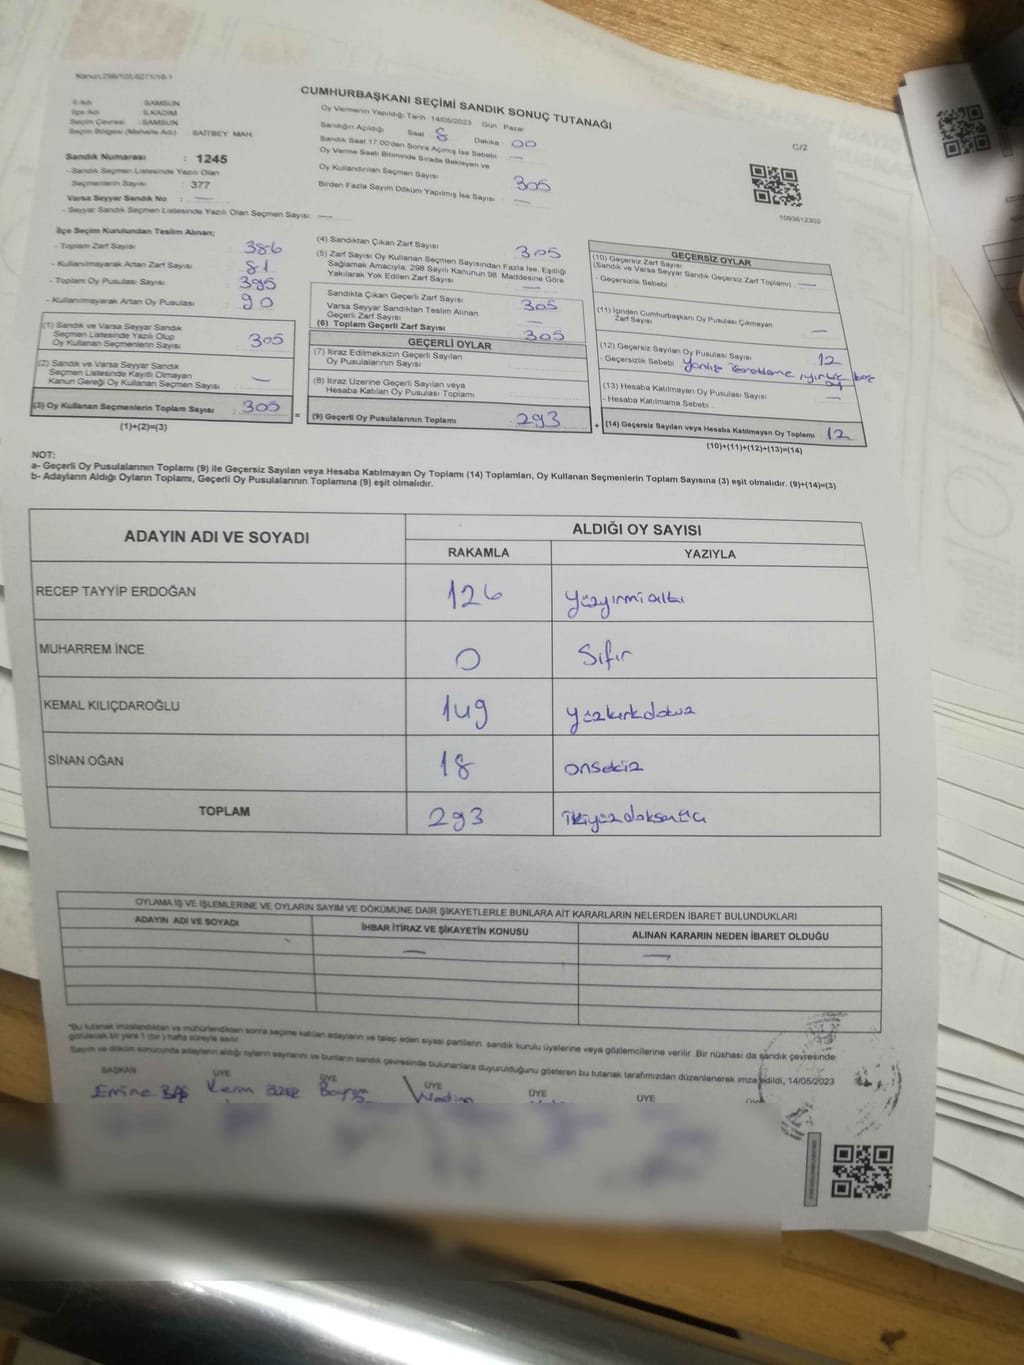 Kanun.298/105.6271/18-1
CUMHURBAŞKANI SEÇİMİ SANDIK SONUÇ TUTANAĞI
C/2
İl Adı : SAMSUN
İlçe Adı : İLKADIM
Seçim Çevresi : SAMSUN
Seçim Bölgesi (Mahalle Adı) : SAİTBEY MAH.
Sandık Numarası : 1245
- Sandık Seçmen Listesinde Yazılı Olan
Seçmenlerin Sayısı : 377
Varsa Seyyar Sandık No : —
- Seyyar Sandık Seçmen Listesinde Yazılı Olan Seçmen Sayısı: —
Oy Vermenin Yapıldığı Tarih :14/05/2023 Gün :Pazar
Sandığın Açıldığı Saat 8 Dakika 00
Sandık Saat 17:00'den Sonra Açılmış İse Sebebi —
Oy Verme Saati Bitiminde Sırada Bekleyen ve
Oy Kullandırılan Seçmen Sayısı 305
Birden Fazla Sayım Döküm Yapılmış İse Sayısı —
1093612302
İlçe Seçim Kurulundan Teslim Alınan;
- Toplam Zarf Sayısı 386
- Kullanılmayarak Artan Zarf Sayısı 81
- Toplam Oy Pusulası Sayısı 395
- Kullanılmayarak Artan Oy Pusulası 90
(1) Sandık ve Varsa Seyyar Sandık
Seçmen Listesinde Yazılı Olup
Oy Kullanan Seçmenlerin Sayısı 305
(2) Sandık ve Varsa Seyyar Sandık
Seçmen Listesinde Kayıtlı Olmayan
Kanun Gereği Oy Kullanan Seçmen Sayısı —
(3) Oy Kullanan Seçmenlerin Toplam Sayısı 305 =
(1)+(2)=(3)
(4) Sandıktan Çıkan Zarf Sayısı 305
(5) Zarf Sayısı Oy Kullanan Seçmen Sayısından Fazla İse, Eşitliği
Sağlamak Amacıyla; 298 Sayılı Kanunun 98. Maddesine Göre
Yakılarak Yok Edilen Zarf Sayısı —
Sandıkta Çıkan Geçerli Zarf Sayısı 305
Varsa Seyyar Sandıktan Teslim Alınan
Geçerli Zarf Sayısı —
(6) Toplam Geçerli Zarf Sayısı 305
GEÇERLİ OYLAR
(7) İtiraz Edilmeksizin Geçerli Sayılan
Oy Pusulalarının Sayısı
(8) İtiraz Üzerine Geçerli Sayılan veya
Hesaba Katılan Oy Pusulası Toplamı
(9) Geçerli Oy Pusulalarının Toplamı 293 +
GEÇERSİZ OYLAR
(10) Geçersiz Zarf Sayısı
(Sandık ve Varsa Seyyar Sandık Geçersiz Zarf Toplamı) —
- Geçersizlik Sebebi
(11) İçinden Cumhurbaşkanı Oy Pusulası Çıkmayan
Zarf Sayısı —
(12) Geçersiz Sayılan Oy Pusulası Sayısı 12
- Geçersizlik Sebebi boş
oy
(13) Hesaba Katılmayan Oy Pusulası Sayısı —
- Hesaba Katılmama Sebebi :
(14) Geçersiz Sayılan veya Hesaba Katılmayan Oy Toplamı 12
(10)+(11)+(12)+(13)=(14)
NOT:
a- Geçerli Oy Pusulalarının Toplamı (9) ile Geçersiz Sayılan veya Hesaba Katılmayan Oy Toplamı (14) Toplamları, Oy Kullanan Seçmenlerin Toplam Sayısına (3) eşit olmalıdır. (9)+(14)=(3)
b- Adayların Aldığı Oyların Toplamı, Geçerli Oy Pusulalarının Toplamına (9) eşit olmalıdır.
ADAYIN ADI VE SOYADI
ALDIĞI OY SAYISI
RAKAMLA YAZIYLA
RECEP TAYYİP ERDOĞAN 126 yüzyirmialtı
MUHARREM İNCE 0 Sıfır
KEMAL KILIÇDAROĞLU 149 yüzkırkdokuz
SİNAN OĞAN 18 onsekiz
TOPLAM 293 ikiyüzdoksanüç
OYLAMA İŞ VE İŞLEMLERİNE VE OYLARIN SAYIM VE DÖKÜMÜNE DAİR ŞİKAYETLERLE BUNLARA AİT KARARLARIN NELERDEN İBARET BULUNDUKLARI
ADAYIN ADI VE SOYADI İHBAR İTİRAZ VE ŞİKAYETİN KONUSU ALINAN KARARIN NEDEN İBARET OLDUĞU
— —
*Bu tutanak imzalandıktan ve mühürlendikten sonra seçime katılan adayların ve talep eden siyasi partilerin sandık kurulu üyelerine veya gözlemcilerine verilir. Bir nüshası da sandık çevresinde
görülecek bir yere 1 (bir) hafta süreyle asılır.
Sayım ve döküm sonucunda adayların aldığı oyların sayılarını ve bunların sandık çevresinde bulunanlara duyurulduğunu gösteren bu tutanak tarafımızdan düzenlenerek imza edildi, 14/05/2023
BAŞKAN ÜYE ÜYE ÜYE ÜYE ÜYE
Emine BAŞ